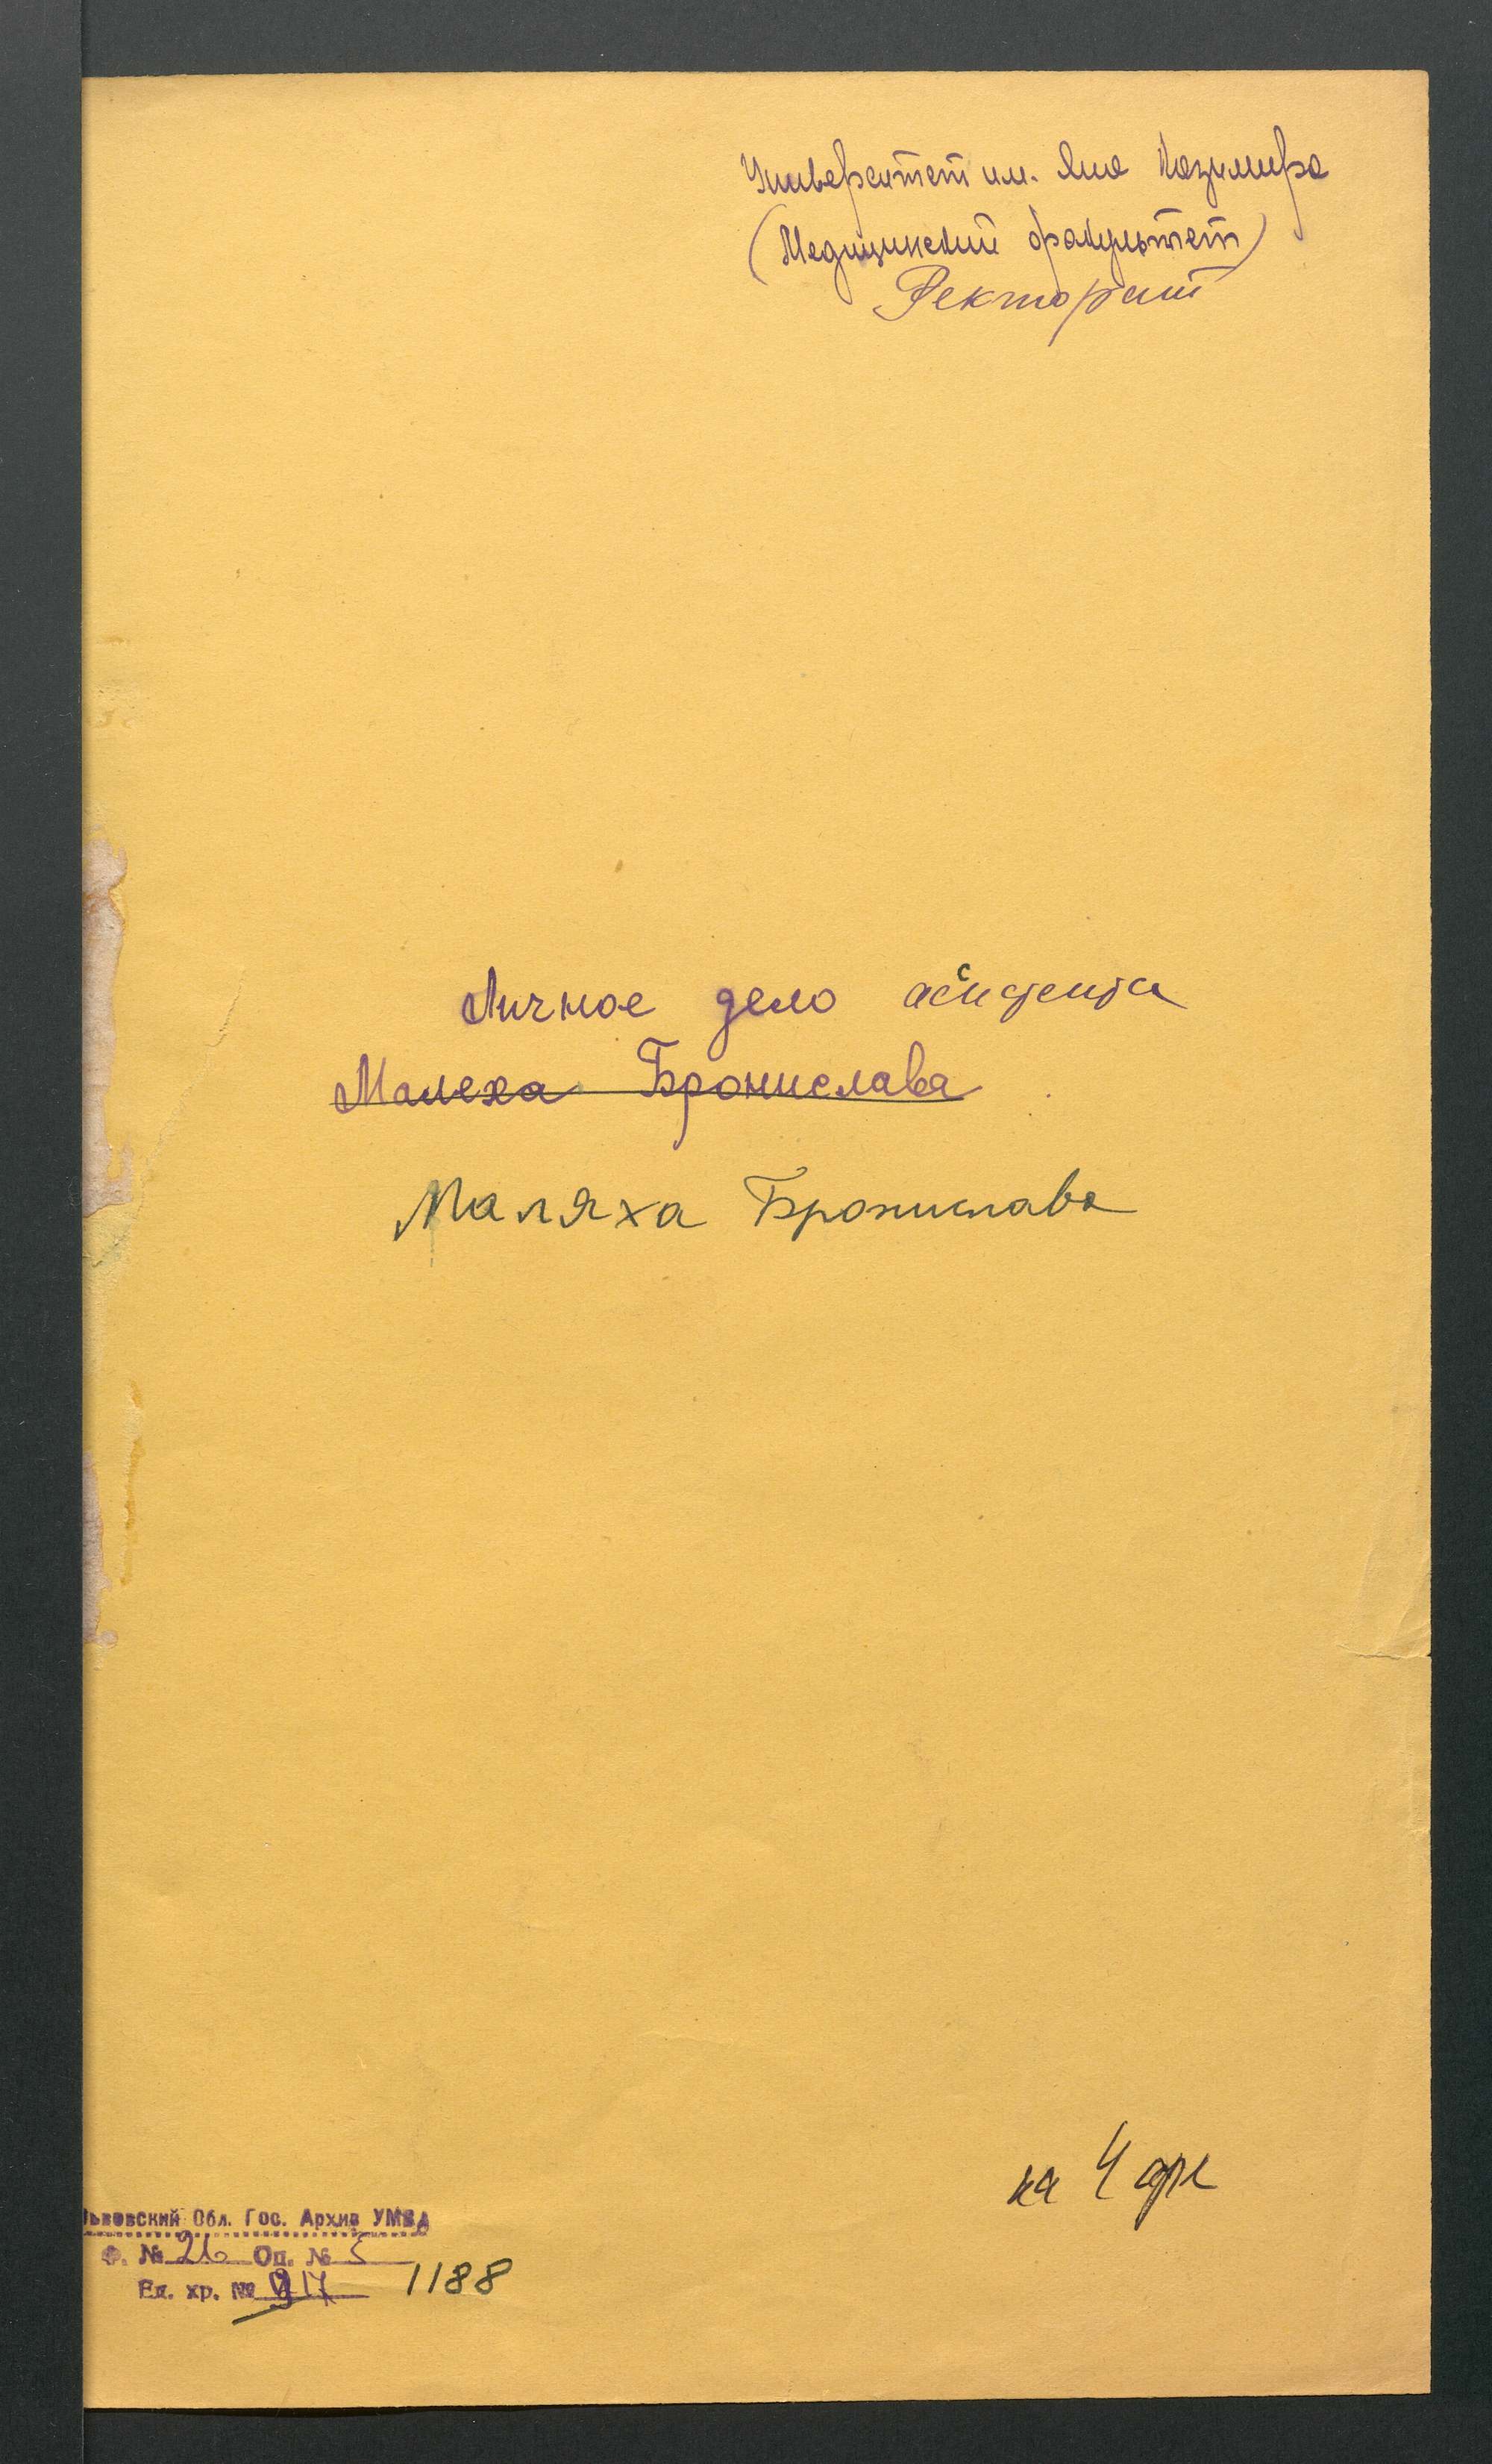 Университет им. Яна Казимира
(Медицинский факультет)
Ректорат
Личное дело асистента
Малеха Бронислава
Маляха Бронислава
на 4 арк
Львовский Обл. Гос. Архив УМВД
Ф. № 26 Оп. № 5
Ед. хр. № 917 1188